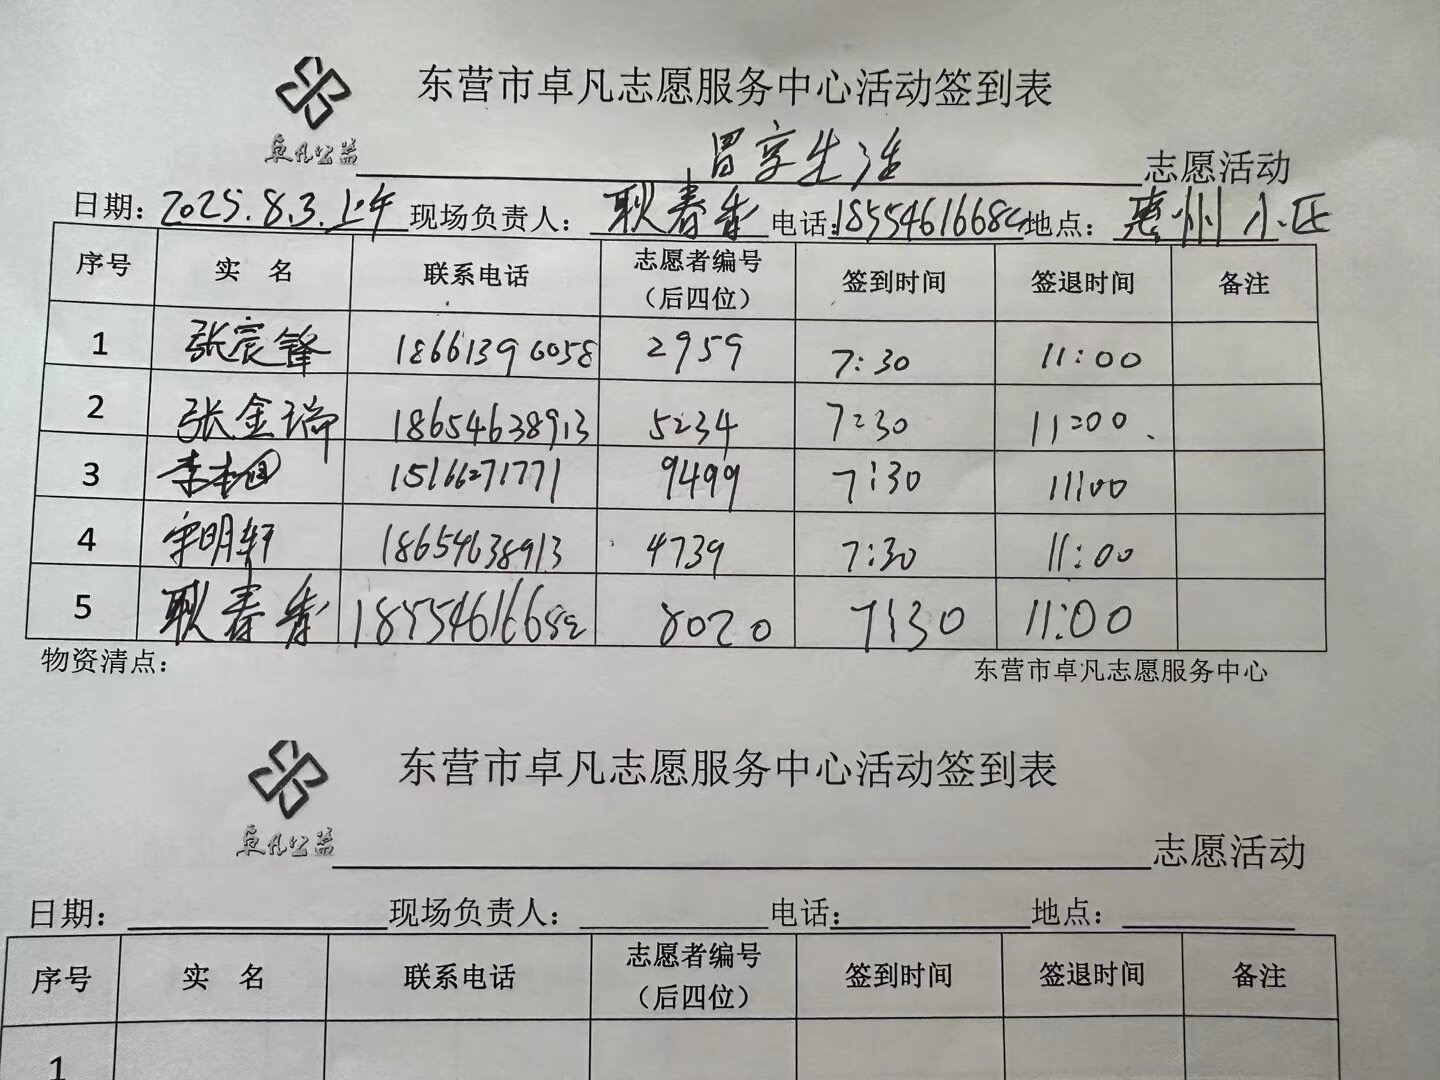 东营市卓凡志愿服务中心活动签到表
卓凡公益
享生活 志愿活动
日期：2025.8.3.上午 现场负责人：耿春香 电话：18554616682 地点：惠州小区
序号 实 名 联系电话 志愿者编号（后四位） 签到时间 签退时间 备注
1 张宸锋 18661396058 2959 7:30 11:00
2 张金瑞 18654638913 5234 7:30 11:00
3 李 15166271771 9499 7:30 11:00
4 宋明轩 18654638913 4739 7:30 11:00
5 耿春香 18554616682 8020 7:30 11:00
物资清点： 东营市卓凡志愿服务中心
东营市卓凡志愿服务中心活动签到表
卓凡公益
志愿活动
日期： 现场负责人： 电话： 地点：
序号 实 名 联系电话 志愿者编号（后四位） 签到时间 签退时间 备注
1